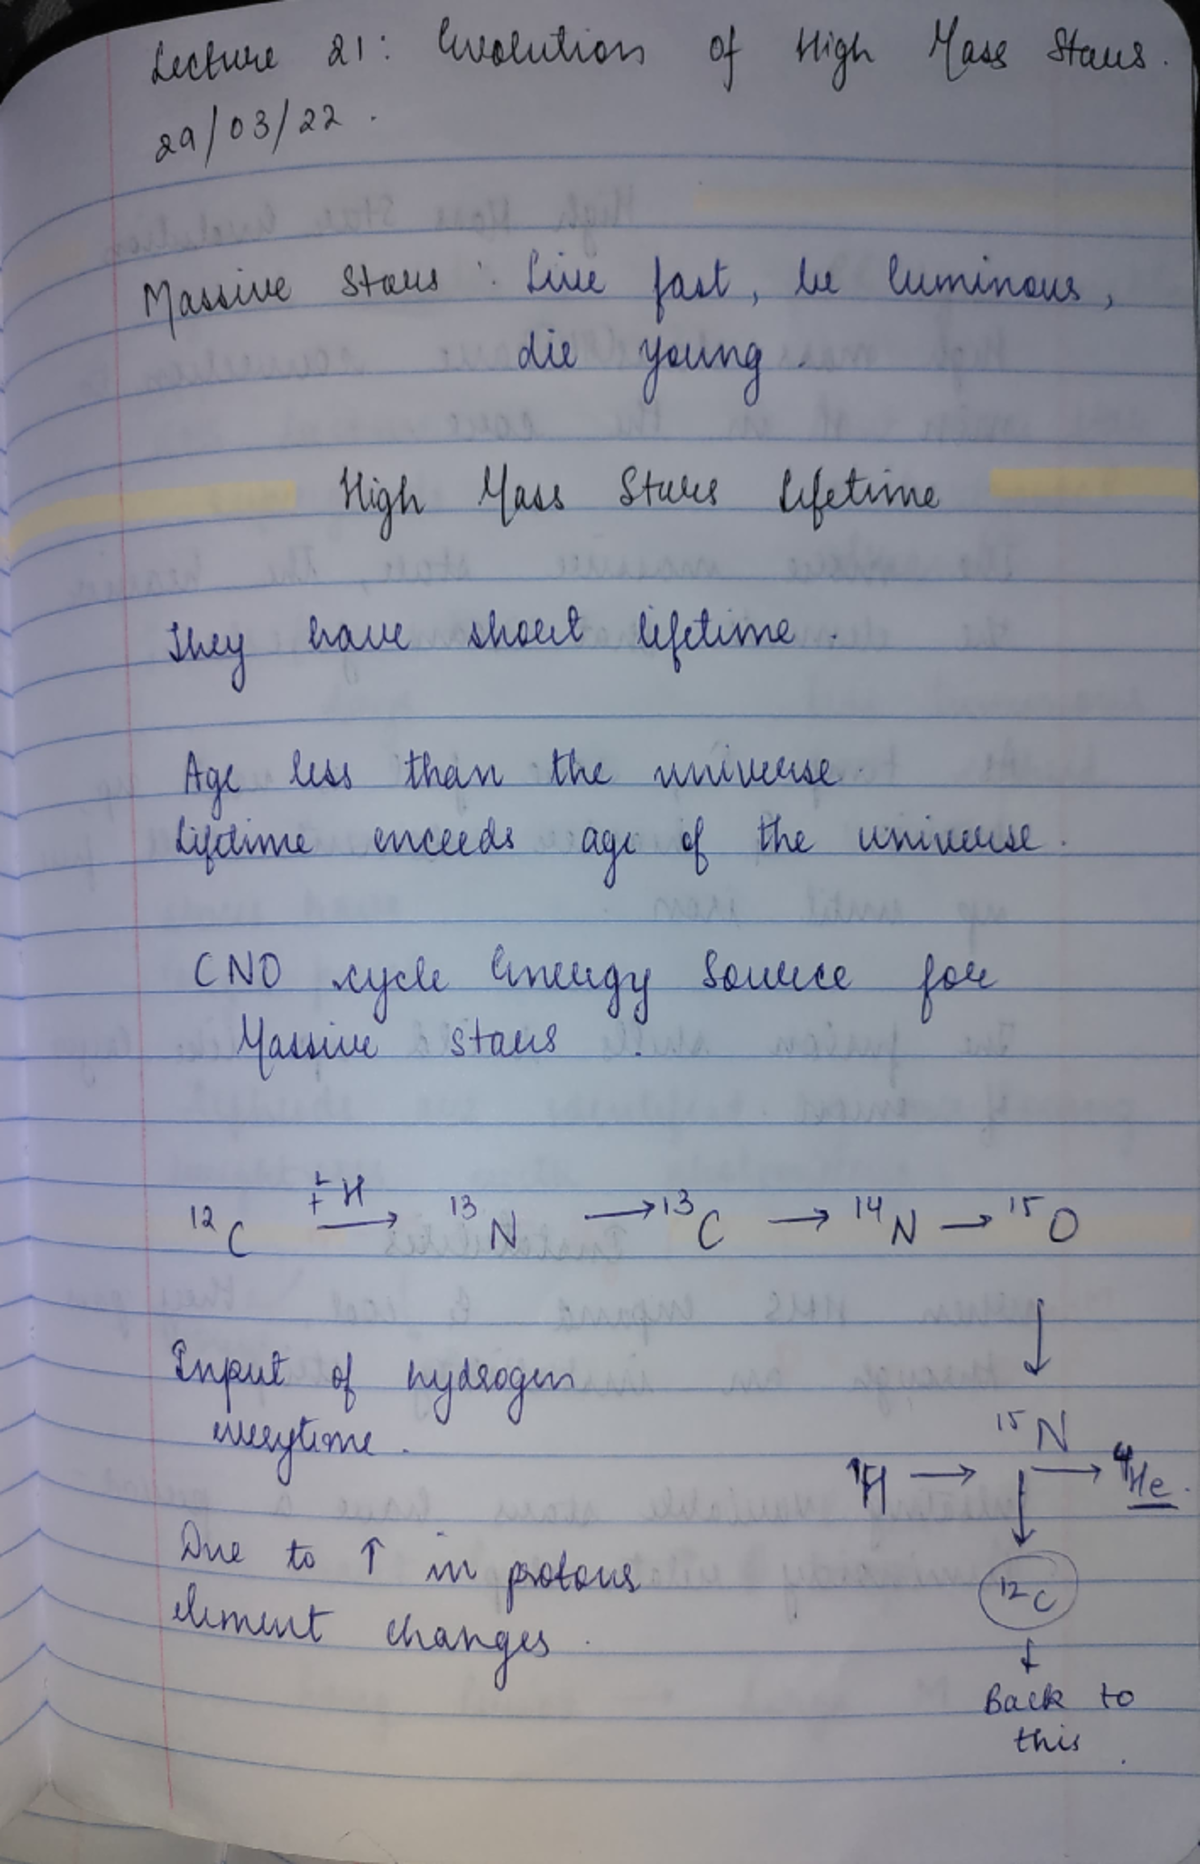 Lecture 21: Evolution of High Mass Stars.
29/03/22.
Massive Stars: Live fast, be luminous,
die young
High Mass Stars Lifetime
They have short lifetime.
Age less than the universe.
Lifetime exceeds age of the universe.
CNO cycle Energy Source for
Massive stars.
¹²C +¹H → ¹³N → ¹³C → ¹⁴N → ¹⁵O
↓
Input of hydrogen
everytime.
¹⁵N
¹H → → ⁴He.
↓
Due to ↑ in protons
¹²C
element changes.
↓
Back to
this.